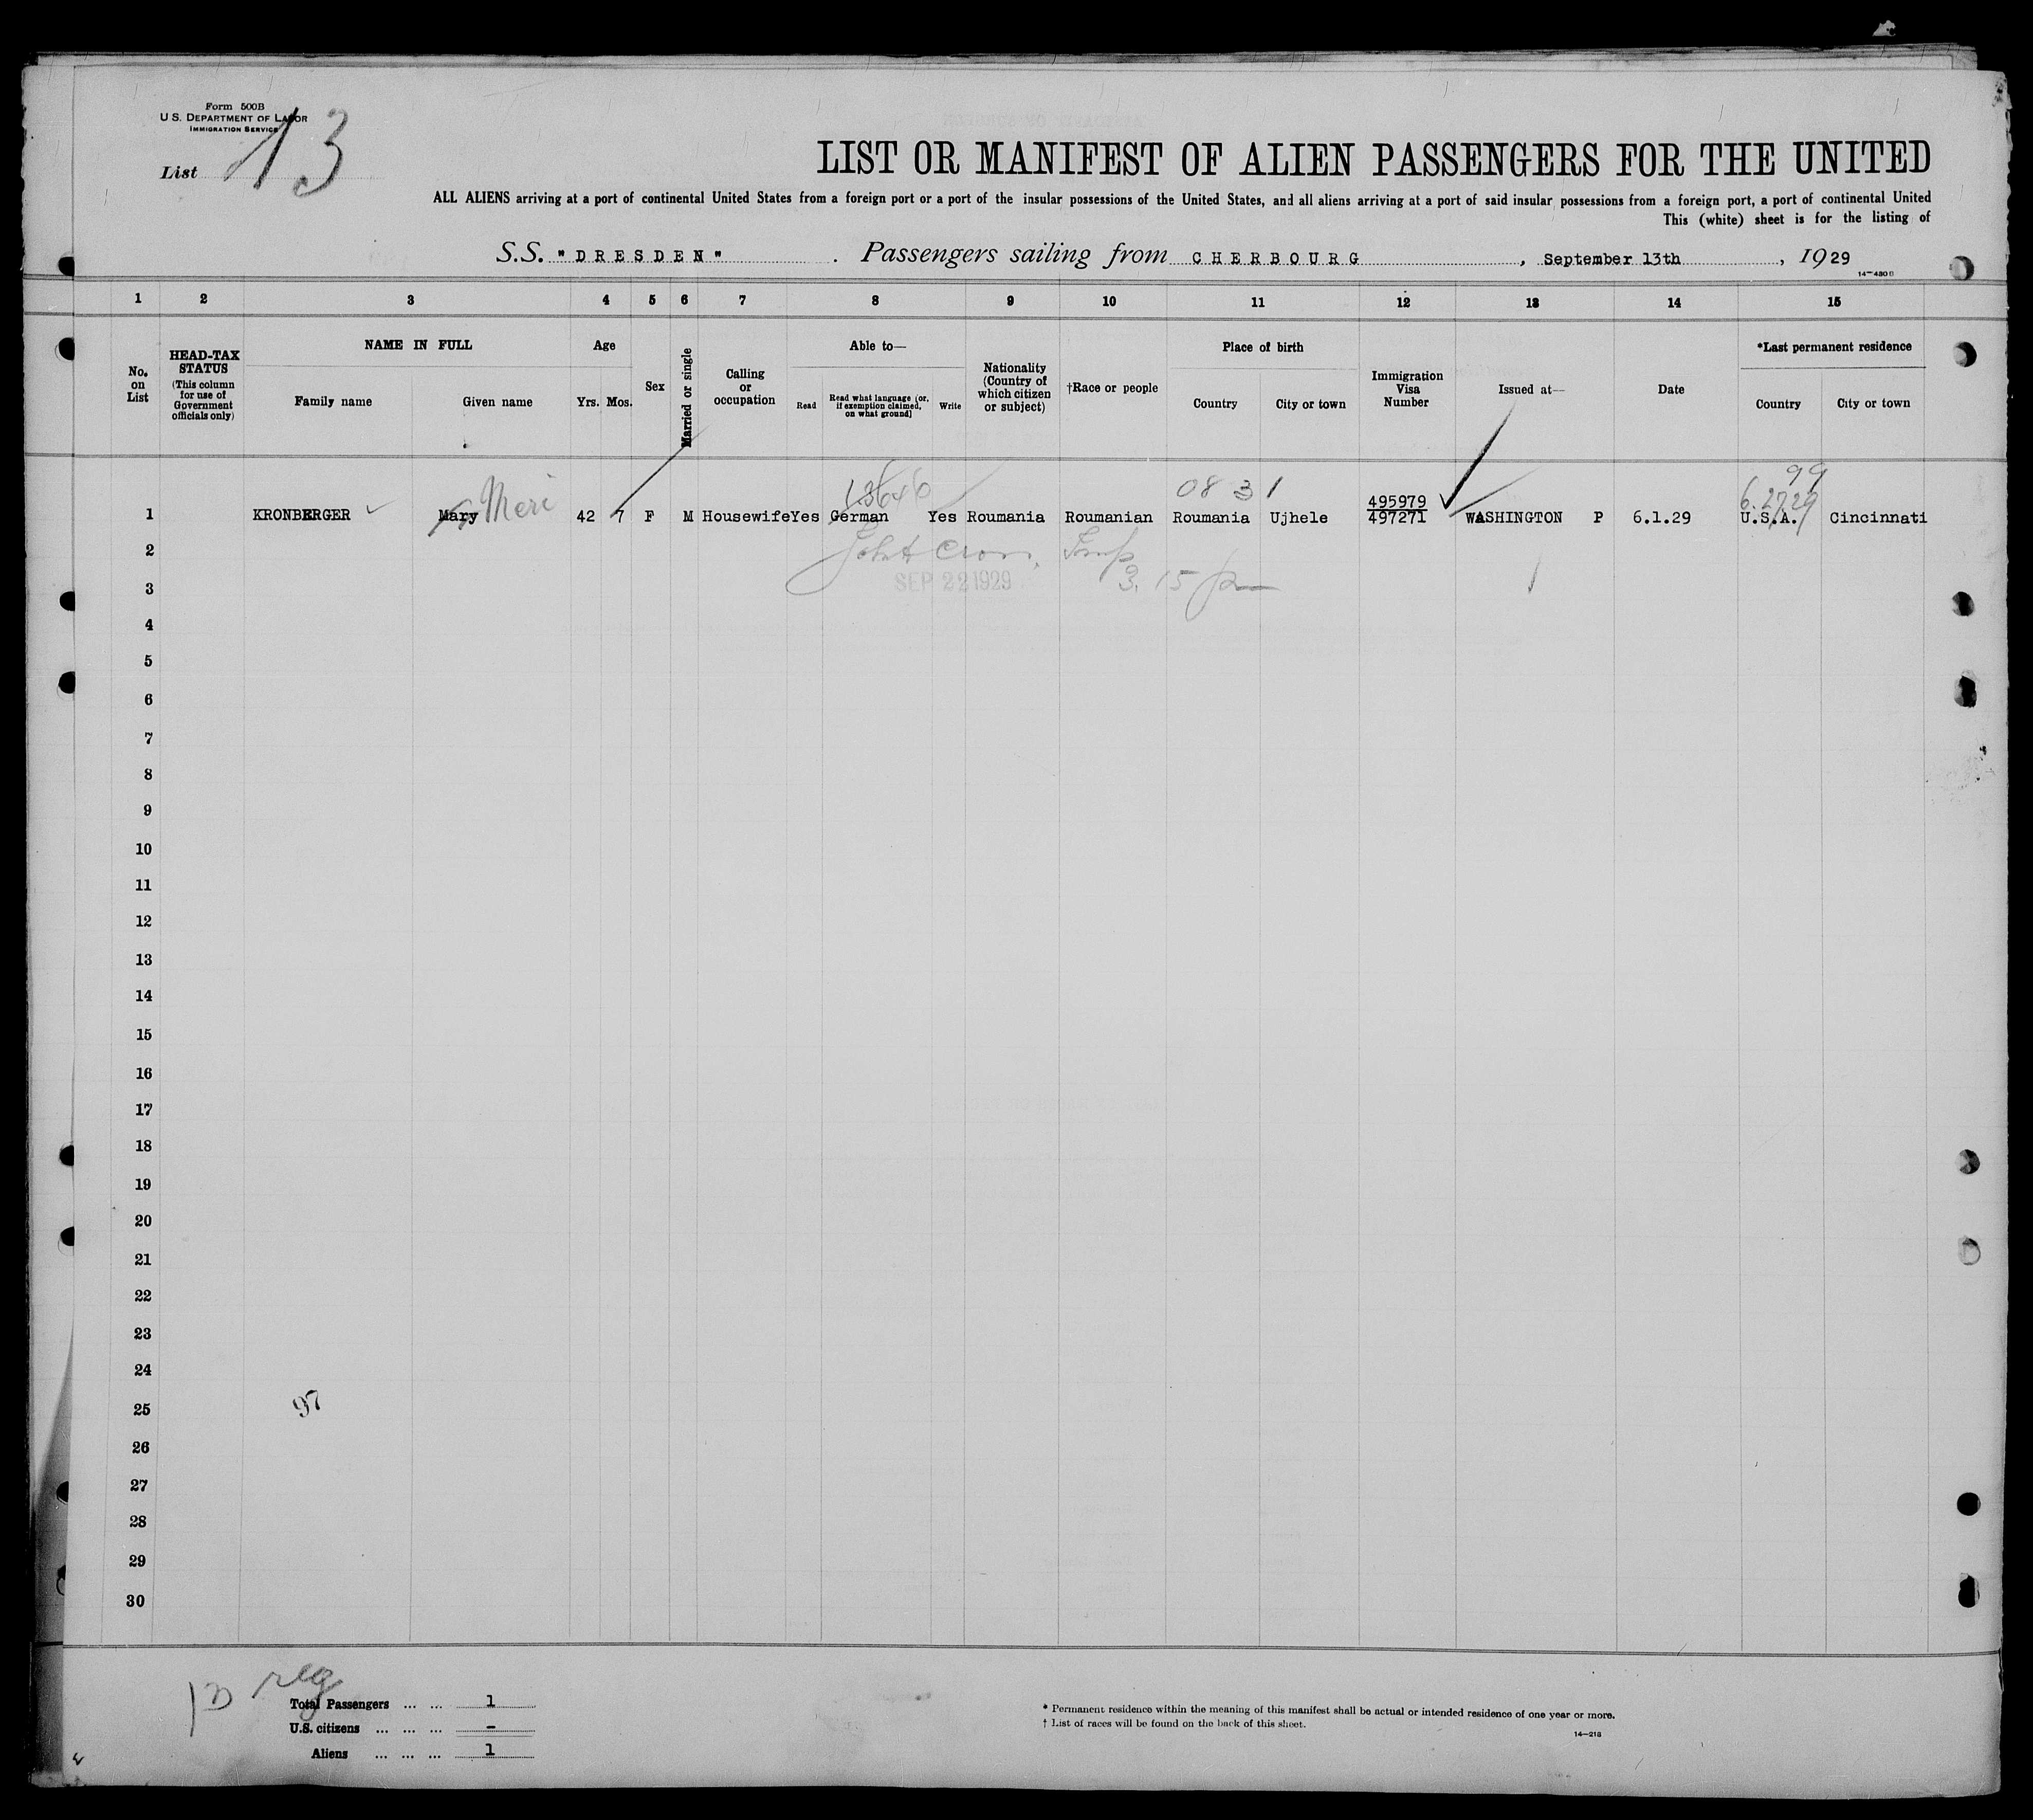 Form 500B
U.S. DEPARTMENT OF LABOR
IMMIGRATION SERVICE
List 13
LIST OR MANIFEST OF ALIEN PASSENGERS FOR THE UNITED
ALL ALIENS arriving at a port of continental United States from a foreign port or a port of the insular possessions of the United States, and all aliens arriving at a port of said insular possessions from a foreign port, a port of continental United
This (white) sheet is for the listing of
S.S. "DRESDEN" . Passengers sailing from CHERBOURG , September 13th , 1929
14—480 B
1 2 3 4 5 6 7 8 9 10 11 12 13 14 15
No. on List
HEAD-TAX STATUS
(This column for use of Government officials only)
NAME IN FULL
Family name Given name
Age
Yrs. Mos.
Sex
Married or single
Calling or occupation
Able to—
Read
Read what language (or, if exemption claimed, on what ground)
Write
Nationality (Country of which citizen or subject)
†Race or people
Place of birth
Country City or town
Immigration Visa Number
Issued at—
Date
*Last permanent residence
Country City or town
99
08 31
6.27.29
495979
1 KRONBERGER Mary Meri 42 7 F M Housewife Yes German Yes Roumania Roumanian Roumania Ujhele 497271 WASHINGTON P 6.1.29 U.S.A. Cincinnati
2
SEP 22 1929 3.15 pm
3
4
5
6
7
8
9
10
11
12
13
14
15
16
17
18
19
20
21
22
23
24
25 97
26
27
28
29
30
reg
Total Passengers ... ... 1
U.S. citizens ... ... ... –
Aliens ... ... ... 1
* Permanent residence within the meaning of this manifest shall be actual or intended residence of one year or more.
† List of races will be found on the back of this sheet.
14—218